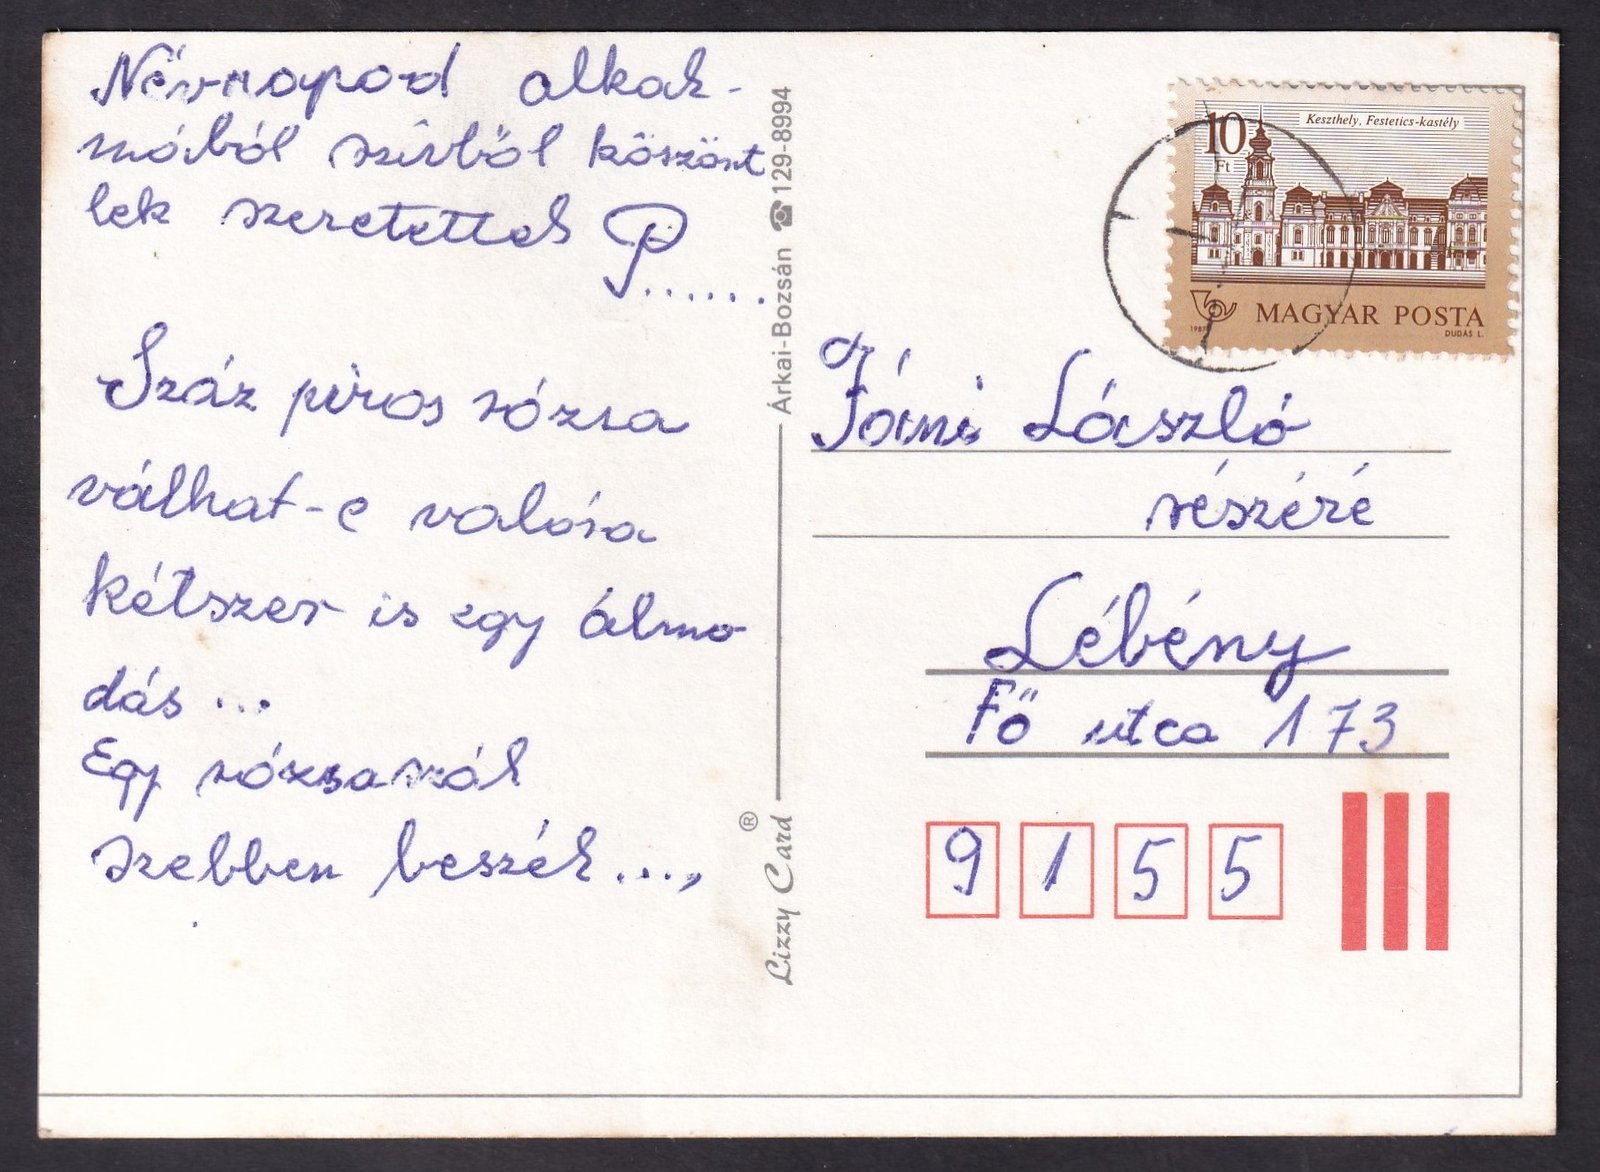 Névnapod alkal-
mából szívből köszönt
lek szeretettel P......
Száz piros rózsa
válhat-e valóra
kétszer is egy álmo
dás...
Egy rózsaszál
szebben beszél...,
Lizzy Card ®
Árkai-Bozsán ☎ 129-8994
10
Ft
Keszthely, Festetics-kastély
MAGYAR POSTA
1987
DUDÁS L.
László
részéré
Lébény
Fő utca 173
9155